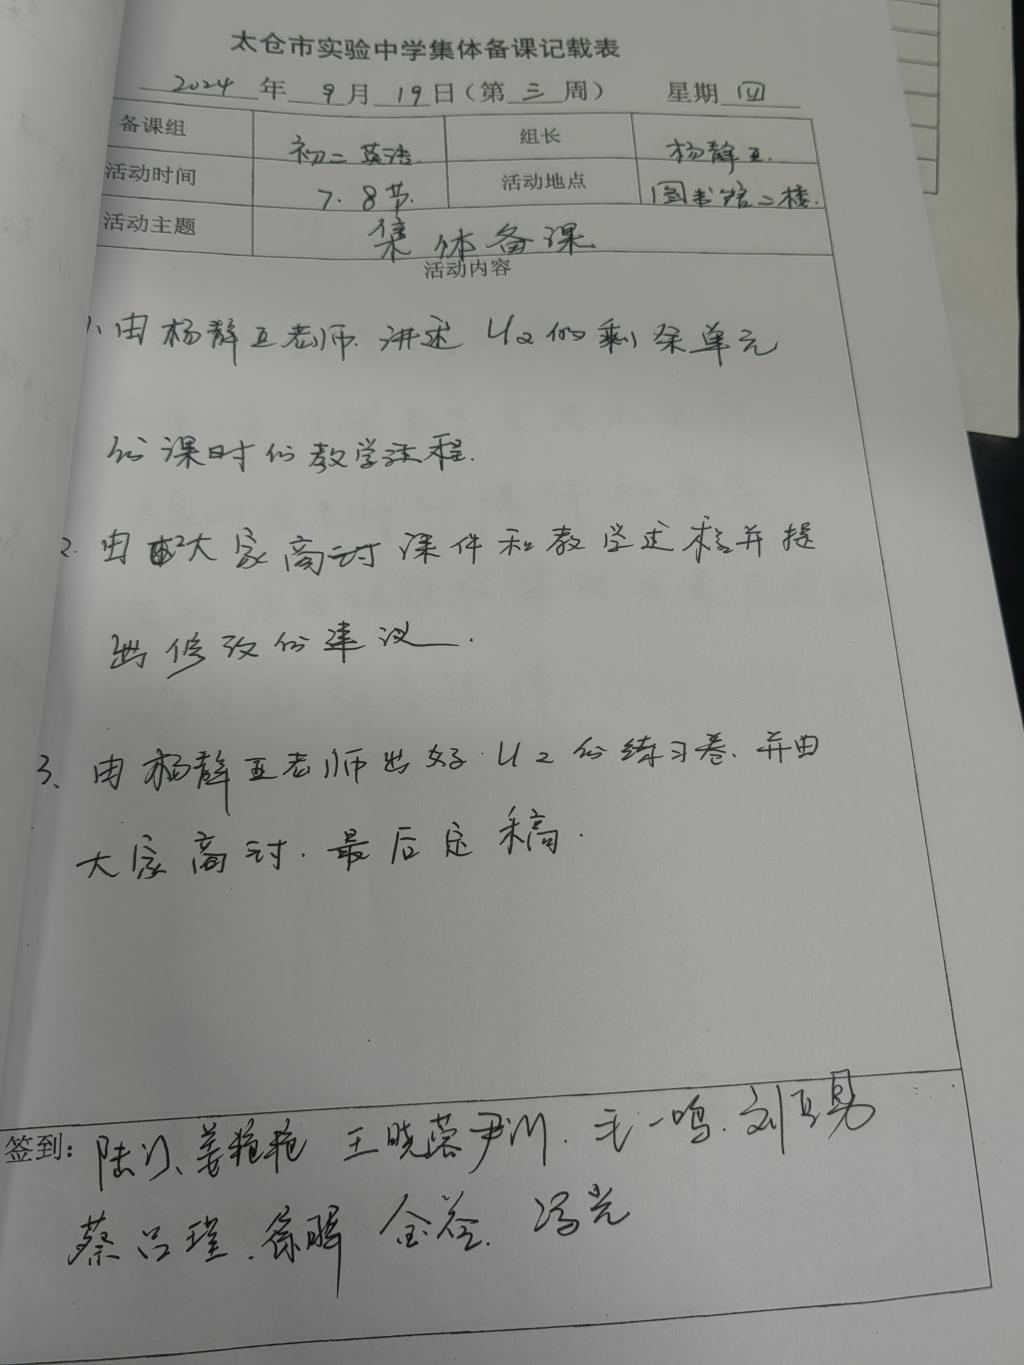 太仓市实验中学集体备课记载表
2024年9月19日(第三周) 星期四
备课组 初二英语 组长 杨静亚
活动时间 7.8节. 活动地点 图书馆二楼.
活动主题 集体备课
活动内容
1、由杨静亚老师讲述U2的剩余单元
的课时的教学流程.
2. 由大家商讨课件和教学过程并提
出修改的建议.
3、由杨静亚老师出好U2的练习卷.并由
大家商讨.最后定稿.
签到: 姜艳艳 王晓蓉 尹川. 毛一鸣.
蔡吕瑾. 冯光